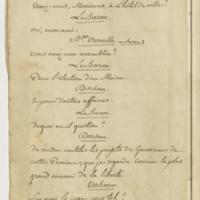 Venez-vous, Messieurs, à l'hôtel de ville?
Le Baron.
oui, mon ami.
Mde
vous avez une assemblée?
Le Baron.
Pour l'élection d'un Maire.
Dorsan.
Et pour d'autres affaires.
Le Baron
De quoi est-il question?
Dorsan.
de rendre inutiles les projets du Gouverneur de
cette Province, que je regarde comme le plus
grand ennemi de la liberté.
Valcour